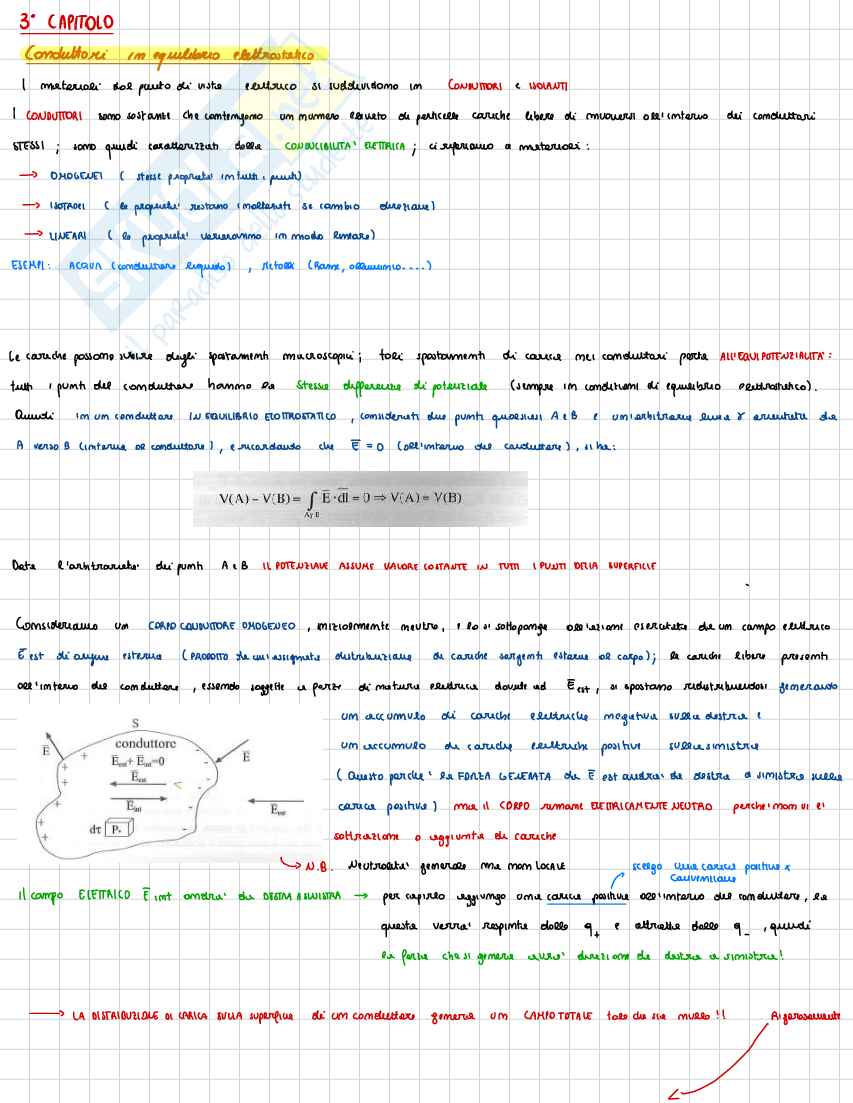 3° CAPITOLO
Conduttori in equilibrio elettrostatico
I materiali dal punto di vista elettrico si suddividono in CONDUTTORI e ISOLANTI
I CONDUTTORI sono sostanze che contengono un numero elevato di particelle cariche libere di muoversi all'interno dei conduttori
STESSI ; sono quindi caratterizzati dalla CONDUCIBILITA' ELETTRICA ; ci riferiamo a materiali :
→ OMOGENEI ( stesse proprietà in tutti i punti)
→ ISOTROPI ( le proprietà restano inalterati se cambio direzione)
→ LINEARI ( le proprietà varieranno in modo lineare)
ESEMPI: ACQUA (conduttore liquido) , METALLI (Rame, alluminio....)
Le cariche possono subire degli spostamenti macroscopici; tali spostamenti di carica nei conduttori porta ALL'EQUIPOTENZIALITÀ:
tutti i punti del conduttore hanno la stessa differenza di potenziale (sempre in condizioni di equilibrio elettrostatico).
Quindi in un conduttore IN EQUILIBRIO ELETTROSTATICO , considerati due punti qualsiasi A e B e un'arbitraria linea γ orientata da
A verso B (interna al conduttore) , e ricordando che E̅ = 0 (all'interno del conduttore) , si ha:
V(A) – V(B) = ∫AγB E̅ · dl̅ = 0 ⇒ V(A) = V(B)
Data l'arbitrarietà dei punti A e B IL POTENZIALE ASSUME VALORE COSTANTE IN TUTTI I PUNTI DELLA SUPERFICIE
Consideriamo un CORPO CONDUTTORE OMOGENEO , inizialmente neutro, e lo si sottoponga all'azione esercitata da un campo elettrico
E̅est di origine esterna (PRODOTTO da un'assegnata distribuzione di cariche sorgenti esterne al corpo) ; le cariche libere presenti
all'interno del conduttore , essendo soggette a forze di natura elettrica dovute ad E̅est , si spostano ridistribuendosi generando
un accumulo di cariche elettriche negative sulla destra e
un accumulo di cariche elettriche positive sulla sinistra
(Questo perché la FORZA GENERATA da E̅ est andrà da destra a sinistra sulle
cariche positive) ma il CORPO rimane ELETTRICAMENTE NEUTRO perché non vi è
sottrazione o aggiunta di cariche
S
conduttore
E̅est + E̅int =0
E̅est
E̅int
dτ P.
E̅
E̅
E̅est
→ N.B. Neutralità generale ma non LOCALE
scelgo una carica positiva x
convenzione
il campo ELETTRICO E̅ int andrà da DESTRA A SINISTRA → per capirlo aggiungo una carica positiva all'interno del conduttore, la
questa verrà respinta dalle q+ e attratta dalle q- , quindi
la forza che si genera avrà direzione da destra a sinistra!
→ LA DISTRIBUZIONE DI CARICA SULLA superficie di un conduttore genera un CAMPO TOTALE tale da sia nullo !! Rigorosamente
SKUOLA.net
il paradiso dello studente